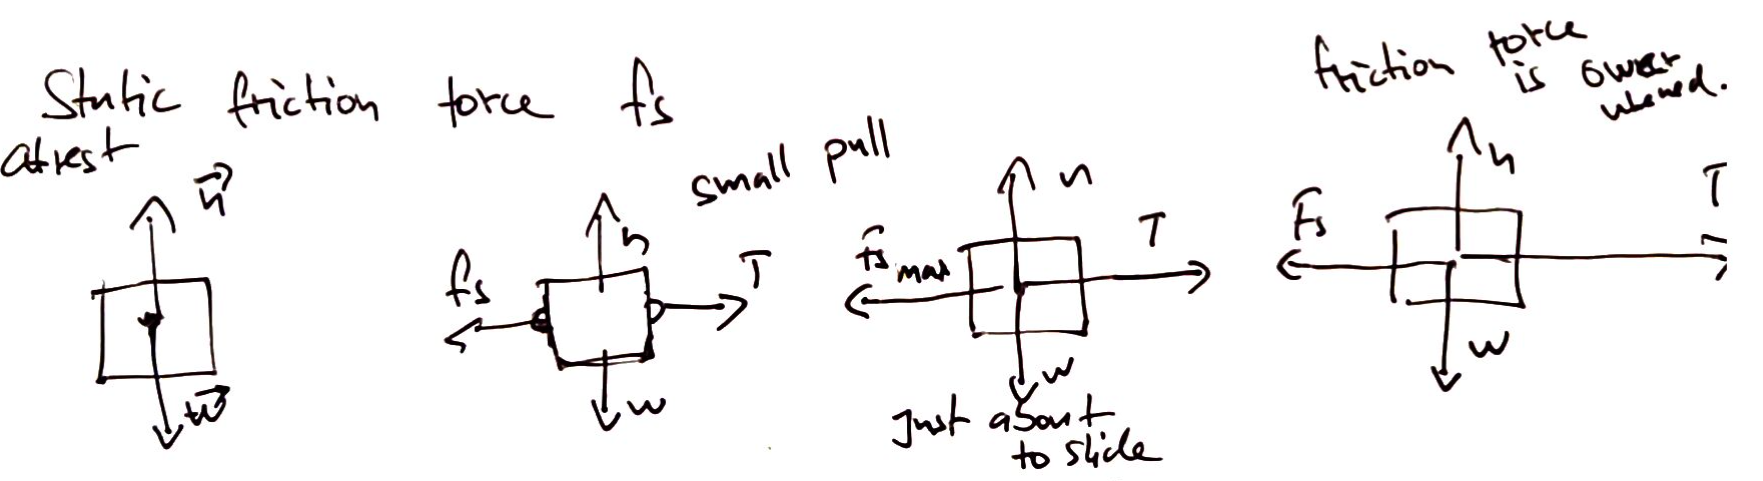 Static friction force fs
at rest
n
w
small pull
fs
n
T
w
fs max
n
T
w
Just about
to slide
friction force
is over
Fs
n
T
w